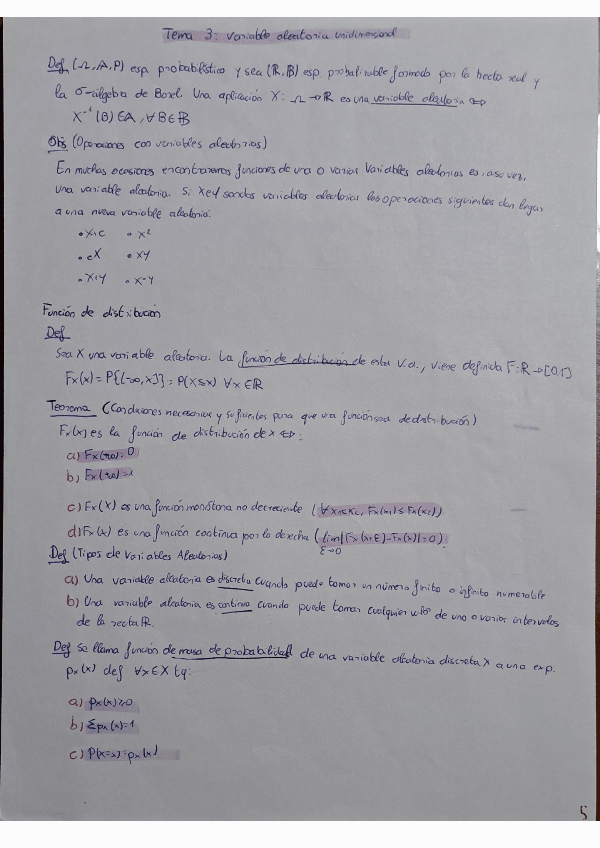 Tema 3: Variable aleatoria unidimensional
Def (Ω, A, P) esp. probabilístico y sea (R, B) esp. probabilizable formado por la recta real y
la σ-álgebra de Borel. Una aplicación X: Ω → R es una variable aleatoria ⇔
X⁻¹(B) ∈ A, ∀B ∈ B
Obs (Operaciones con variables aleatorias)
En muchas ocasiones encontraremos funciones de una o varias variables aleatorias es, a su vez,
una variable aleatoria. Si X e Y son dos variables aleatorias las operaciones siguientes dan lugar
a una nueva variable aleatoria:
• X+c • X²
• cX • XY
• X+Y • X-Y
Función de distribución
Def
Sea X una variable aleatoria. La función de distribución de esta v.a., viene definida F: R → [0,1]
Fx(x) = P{(-∞, x]} = P(X≤x) ∀x ∈ R
Teorema (Condiciones necesarias y suficientes para que una función sea de distribución)
Fx(x) es la función de distribución de x ⇔:
a) Fx(-∞) = 0
b) Fx(+∞) = 1
c) Fx(X) es una función monótona no decreciente (∀x₁<x₂, Fx(x₁) ≤ Fx(x₂))
d) Fx(x) es una función continua por la derecha (lim |Fx(x+ε)-Fx(x)| = 0).
ε→0
Def (Tipos de Variables Aleatorias)
a) Una variable aleatoria es discreta cuando puede tomar un número finito o infinito numerable
b) Una variable aleatoria es continua cuando puede tomar cualquier valor de uno o varios intervalos
de la recta R.
Def Se llama función de masa de probabilidad de una variable aleatoria discreta X a una exp.
px(x) def ∀x ∈ X tq:
a) px(x) ≥ 0
b) Σpx(x) = 1
c) P(X=x) = px(x)
5